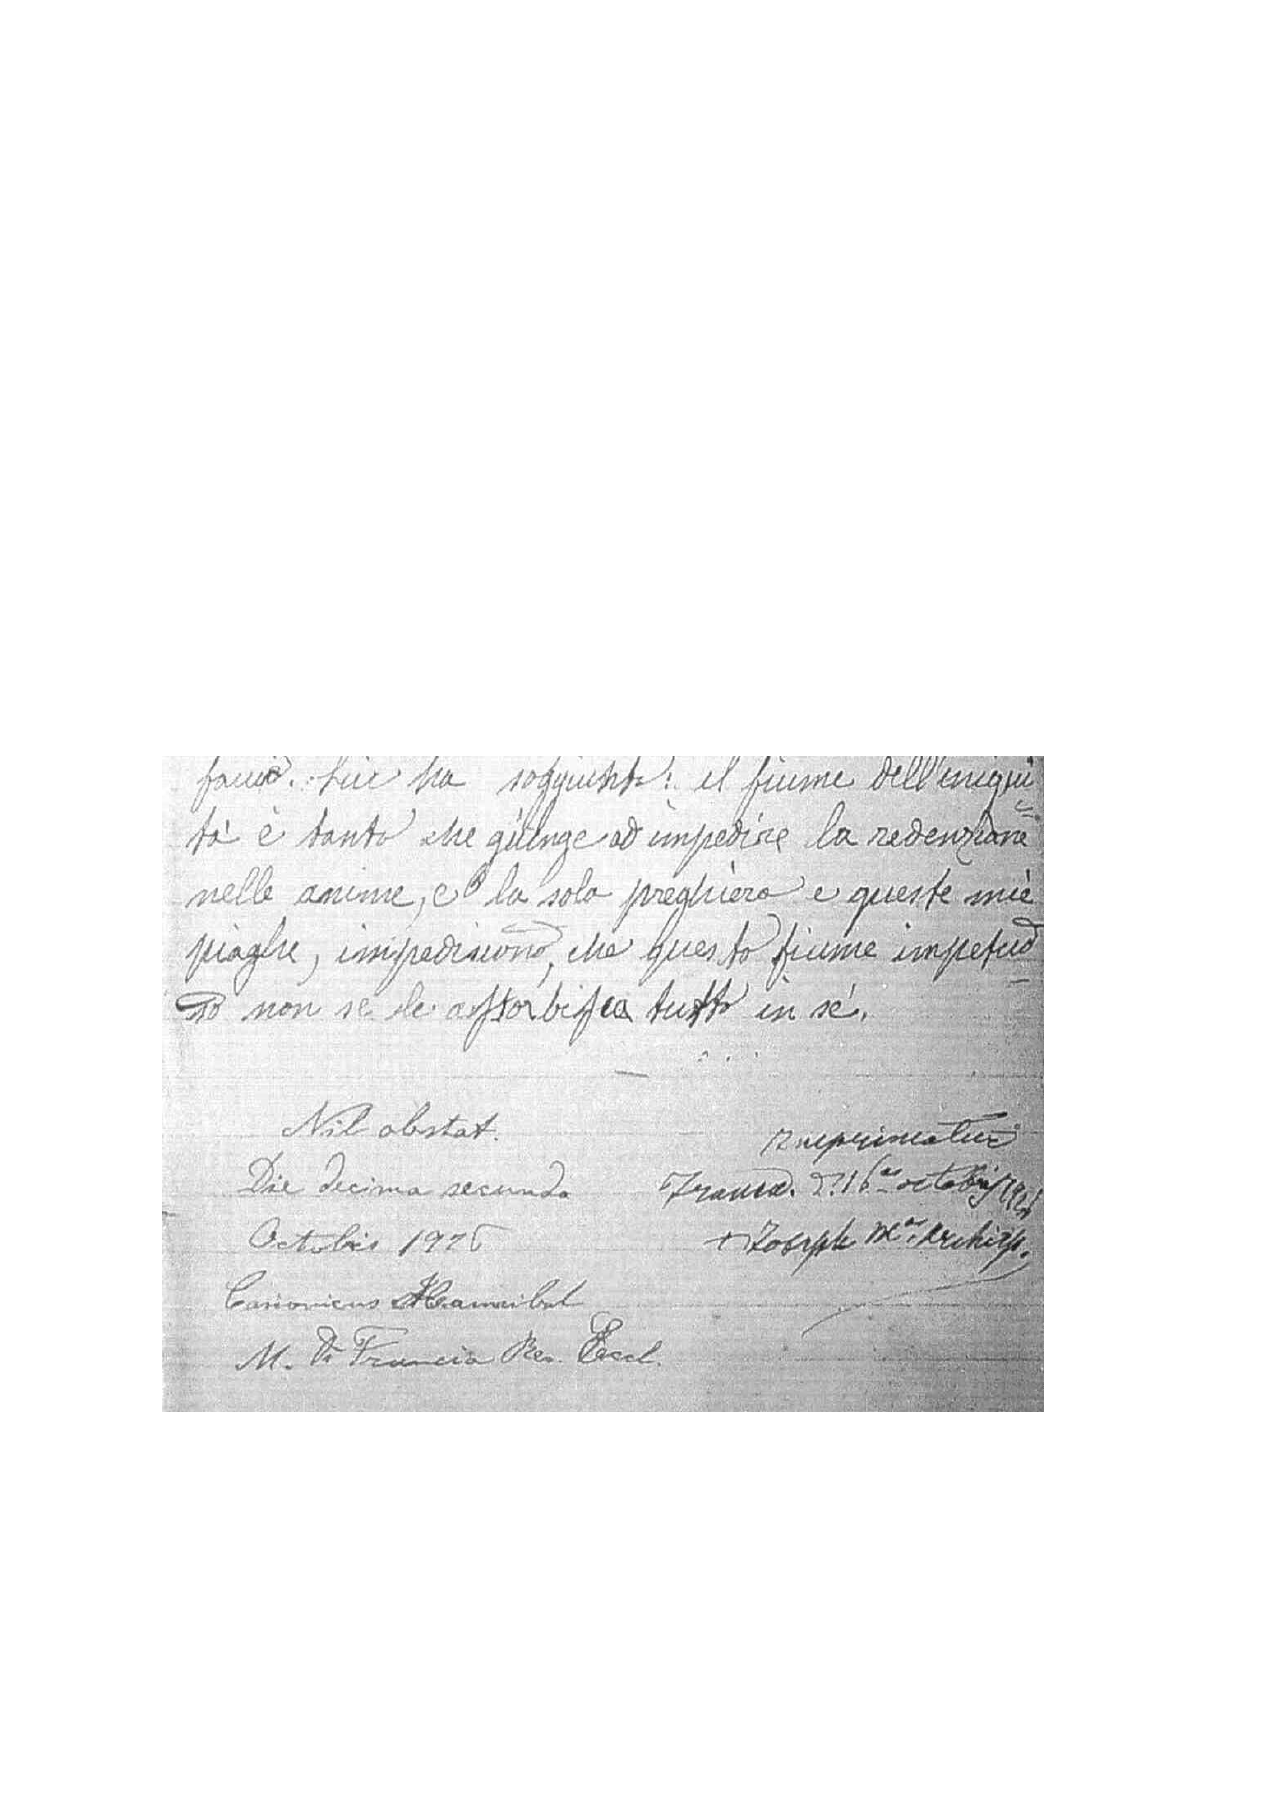 ha soggiunto: il fiume dell'iniqui
tà è tanto che giunge ad impedire la redenzione
nelle anime, e la sola preghiera e queste mie
piaghe, impediscono, che questo fiume impetuo
so non se le assorbisca tutto in sé.
Nil obstat.
Die decima secunda
Octobris 1926
Canonicus Hannibal
M. Di Francia Rev. Eccl.
Imprimatur
d. 16 octobris 1926
+ Joseph Ma. Archiep.